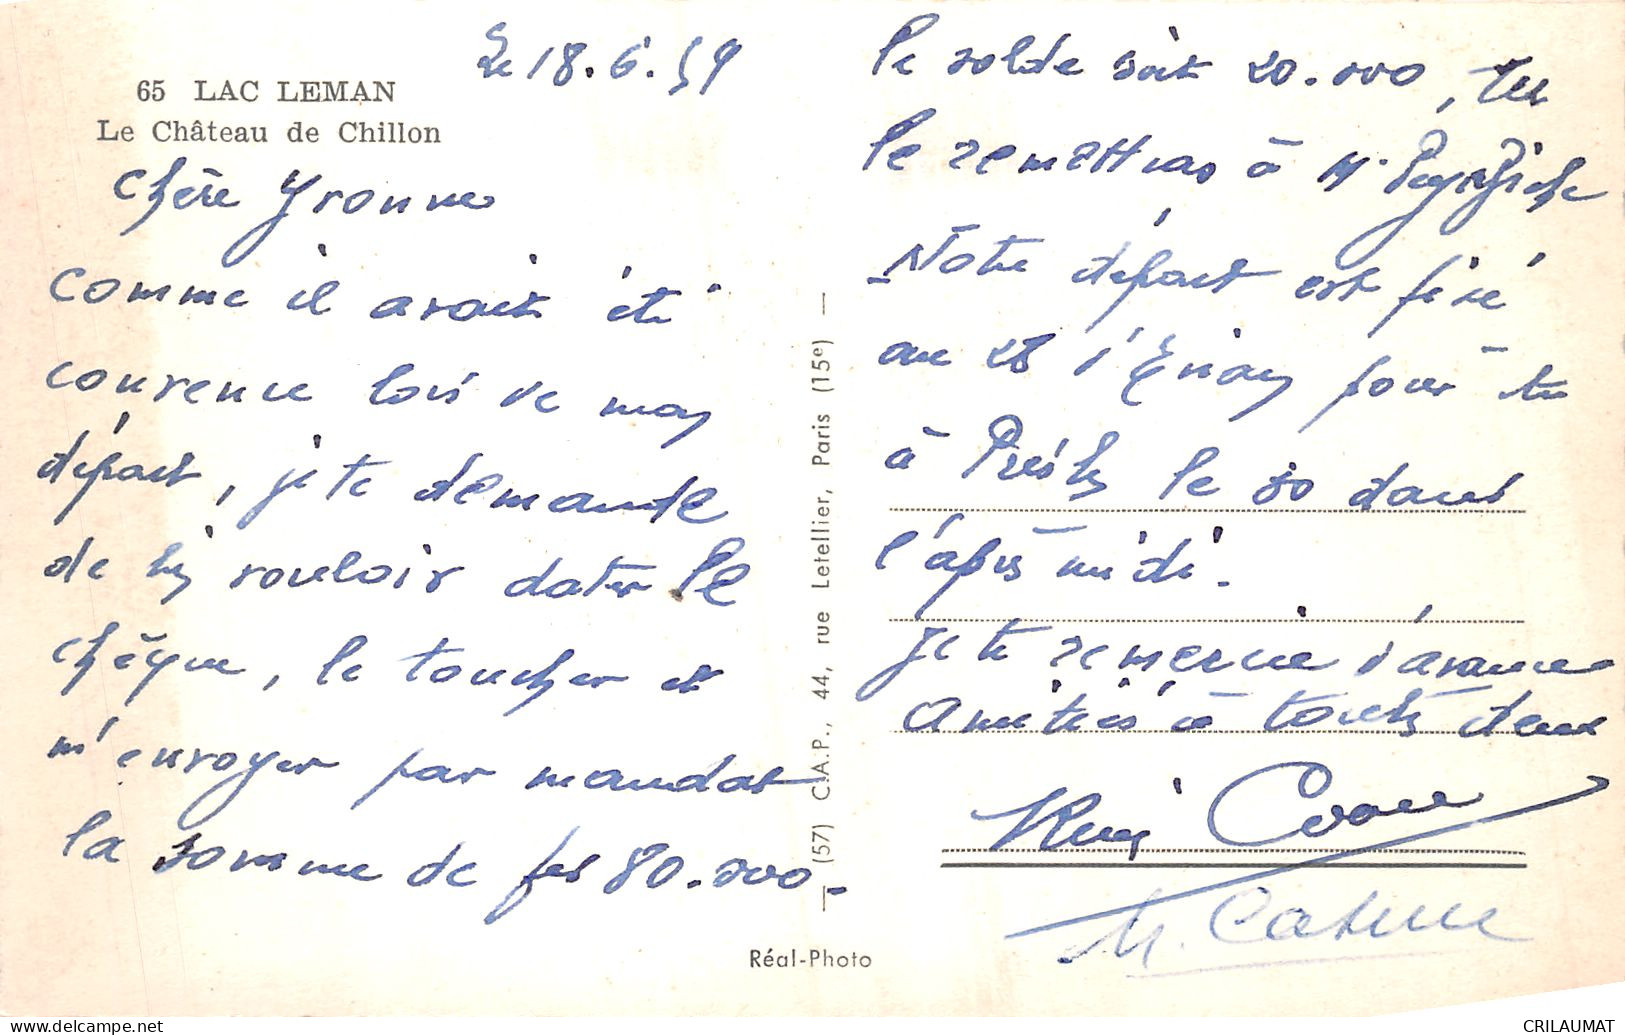 65 LAC LEMAN
Le Château de Chillon
Le 18.6.59
Chère Yvonne
comme il avait été
convenu lors de mon
départ, je te demande
de bien vouloir dater le
chèque, le toucher et
m'envoyer par mandat
la somme de frs 80.000.-
le solde soit 20.000, tu
le remettras à M.
- Notre départ est fixé
au 28 d'Evian pour être
à le 30 dans
l'après midi.
Je te remercie d'avance
Amitiés à toutes deux
(57) C.A.P., 44, rue Letellier, Paris (15e)
Réal-Photo
CRILAUMAT